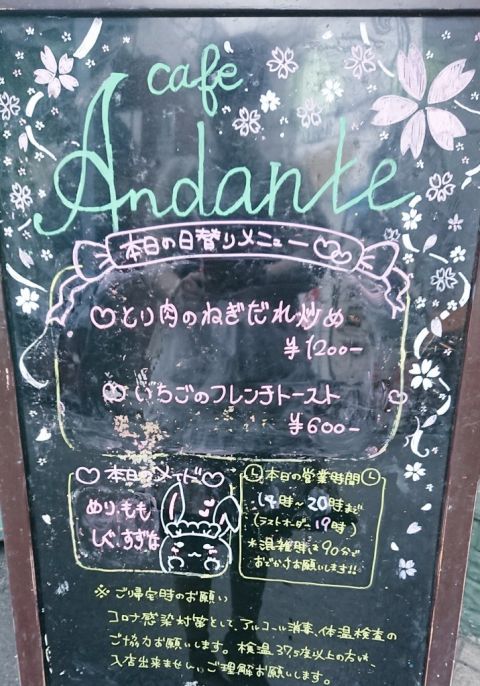 cafe
Andante
本日の日替りメニュー
とり肉のねぎだれ炒め
¥1200-
いちごのフレンチトースト
¥600-
本日のメイド
めり、もも
しぐ、すずな
本日の営業時間
14時〜20時まで
(ラストオーダー19時)
*混雑時は90分で
おでかけお願いします!!
※ご帰宅時のお願い
コロナ感染対策として、アルコール消毒、体温検査の
ご協力お願いします。検温37.5度以上の方は、
入店出来ません。ご理解お願いします。